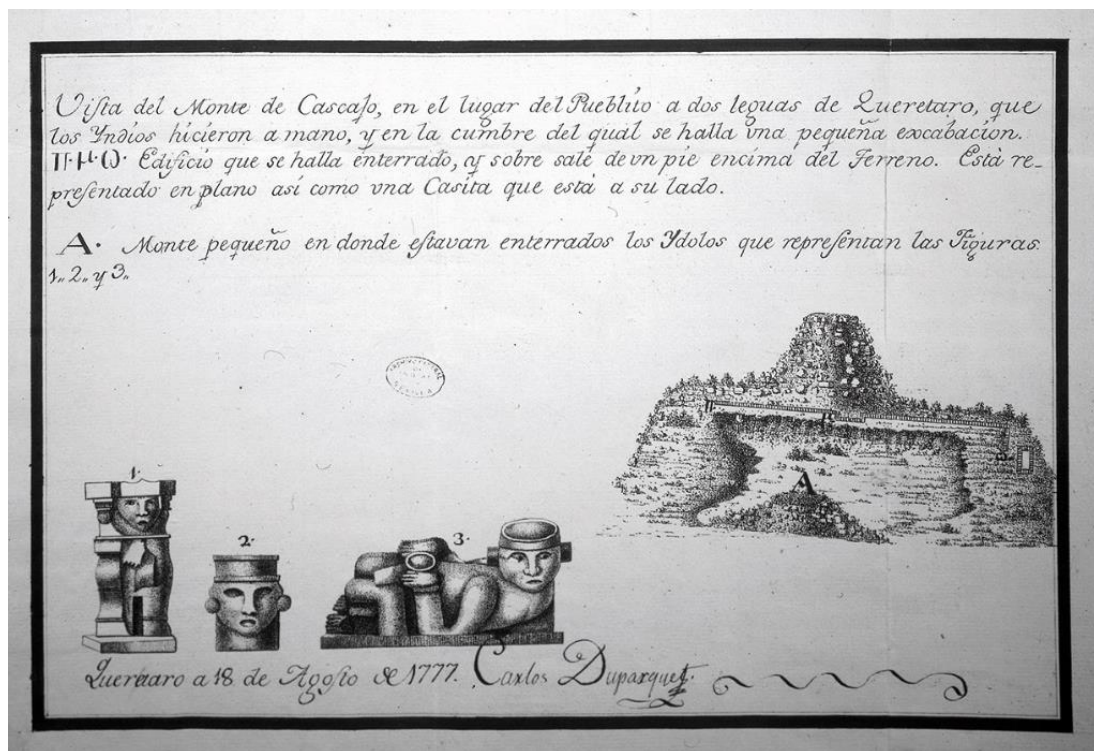 Vista del Monte de Cascajo, en el lugar del Pueblito a dos leguas de Queretaro, que
los Yndios hicieron a mano, y en la cumbre del qual se halla vna pequeña excabacion.
Π·Η·Ω· Edificio que se halla enterrado, y sobre sale de vn pie encima del Terreno. Està re-
presentado en plano así como vna Casita que està a su lado.
A. Monte pequeño en donde estavan enterrados los Ydolos que representan las Figuras
1,, 2,, y 3,,
A
1.
2.
3.
Queretaro a 18 de Agosto de 1777. Carlos Duparquet.